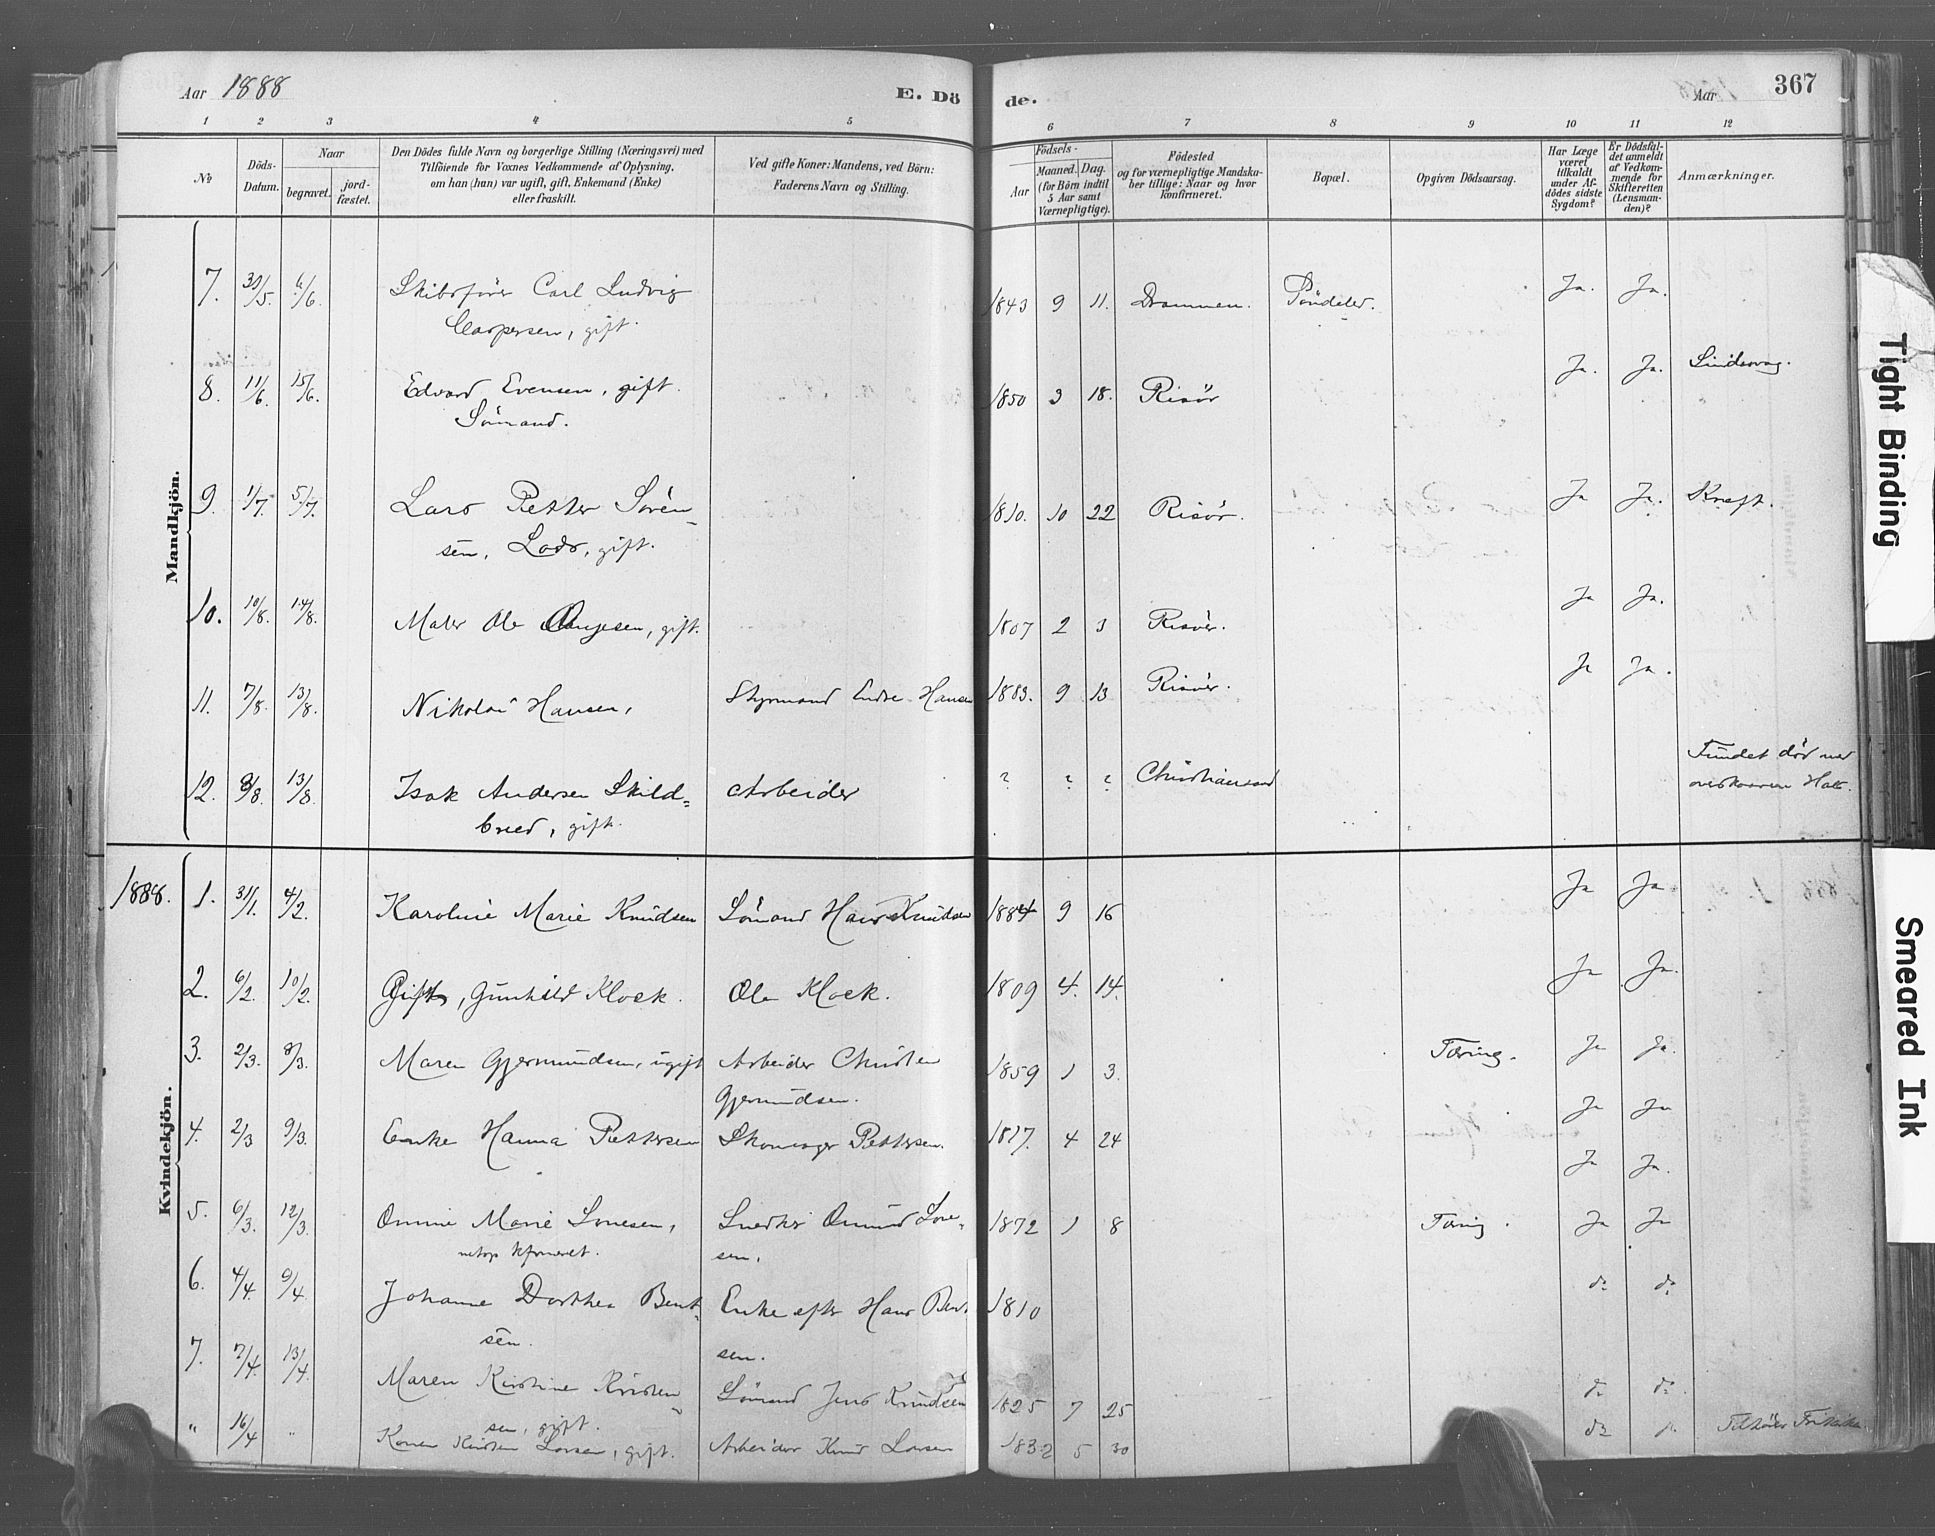 Aar 1888
E. Dö
de.
Aar
367
1 2 3 4 5 6 7 8 9 10 11 12
№
Döds-
Datum.
Naar
begravet.
jord-
fæstet.
Den Dödes fulde Navn og borgerlige Stilling (Næringsvei) med
Tilföiende for Voxnes Vedkommende af Oplysning,
om han (hun) var ugift, gift, Enkemand (Enke)
eller fraskilt.
Ved gifte Koner: Mandens, ved Börn:
Faderens Navn og Stilling.
Födsels-
Aar
Maaned.
Dag.
(for Börn indtil
5 Aar samt
Værnepligtige).
Födested
og for værnepligtige Mandska-
ber tillige: Naar og hvor
konfirmeret.
Bopæl.
Opgiven Dödsaarsag.
Har Læge
været
tilkaldt
under Af-
dödes sidste
Sygdom?
Er Dödsfal-
det anmeldt
af Vedkom-
mende for
Skifteretten
(Lensman-
den)?
Anmærkninger.
Mandkjön.
7. 31/5. 6/6. Skibsförer Carl Ludvig 1843 9 11. Drammen. Söndeled. Ja. Ja.
Caspersen, gift.
8. 11/6. 15/6. Edvard Evensen, gift. 1850 3 18. Risör Ja. Ja.
Sömand.
9. 1/7. 5/7. Lars Petter Sören- 1810. 10 22 Risör. Ja Ja. Kræft.
sen, Lods, gift.
10. 10/8. 14/8. Maler Ole gift. 1807 2 3 Risör. Ja Ja.
11. 7/8. 13/8. Nikolai Hansen, Styrmand Endre Hansen 1883. 9 13 Risör. Ja Ja.
12. 8/8. 13/8. Isak Andersen Skild= Arbeider ? ? ? Christiansand Fundet död med
bred, gift. overskaaren Hals.
Kvindekjön.
1888. 1. 31/1. 4/2. Karoline Marie Knudsen Sömand Hans Knudsen 1884 9 16 Ja Ja
2. 6/2. 10/2. Gift, Gunhild Klock. Ole Klock. 1809 4. 14. Ja Ja.
3. 2/3. 8/3. Maren Gjermundsen, ugift Arbeider Christen 1859 1 3. Tæring. Ja Ja.
Gjermundsen.
4. 2/3 9/3. Enke Hanna Pettersen Skomager Pettersen. 1817. 4 24 Ja Ja
Ja Ja.
5. 6/3. 12/3. Marie 1872 1 8 Tæring. Ja Ja
sen.
6. 4/4. 9/4. Johanne Dorthea Bent- Enke efter Hans Bent- 1810 do do
sen. sen.
7. 7/4. 13/4. Maren Kirstine Kristen- Sömand Jens Knudsen 1825 7 25 do do
sen, gift.
" 16/4 " Konen Kirsten Larsen, gift. Arbeider Knud Larsen 1832 5 30 do Tilhörer Frikirken
Tight Binding
Smeared Ink